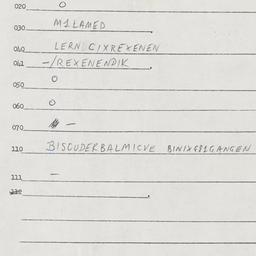 020 O
030 M1LAMED
040 LERN CIXREXENEN
041 -/REXENENDIK
050 O
060 O
070 –
110 BISOUDERBALMICVE BINIX
111 –